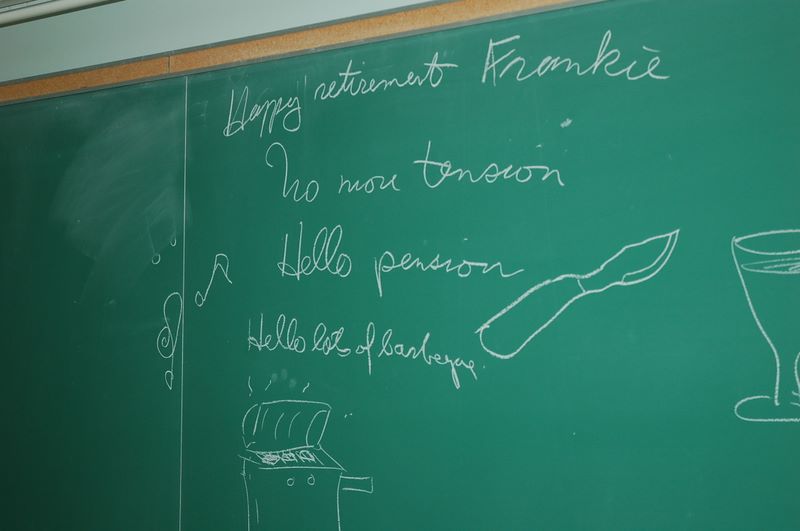 Happy retirement Frankie
No more tension
Hello pension
Hello lots of barbeque